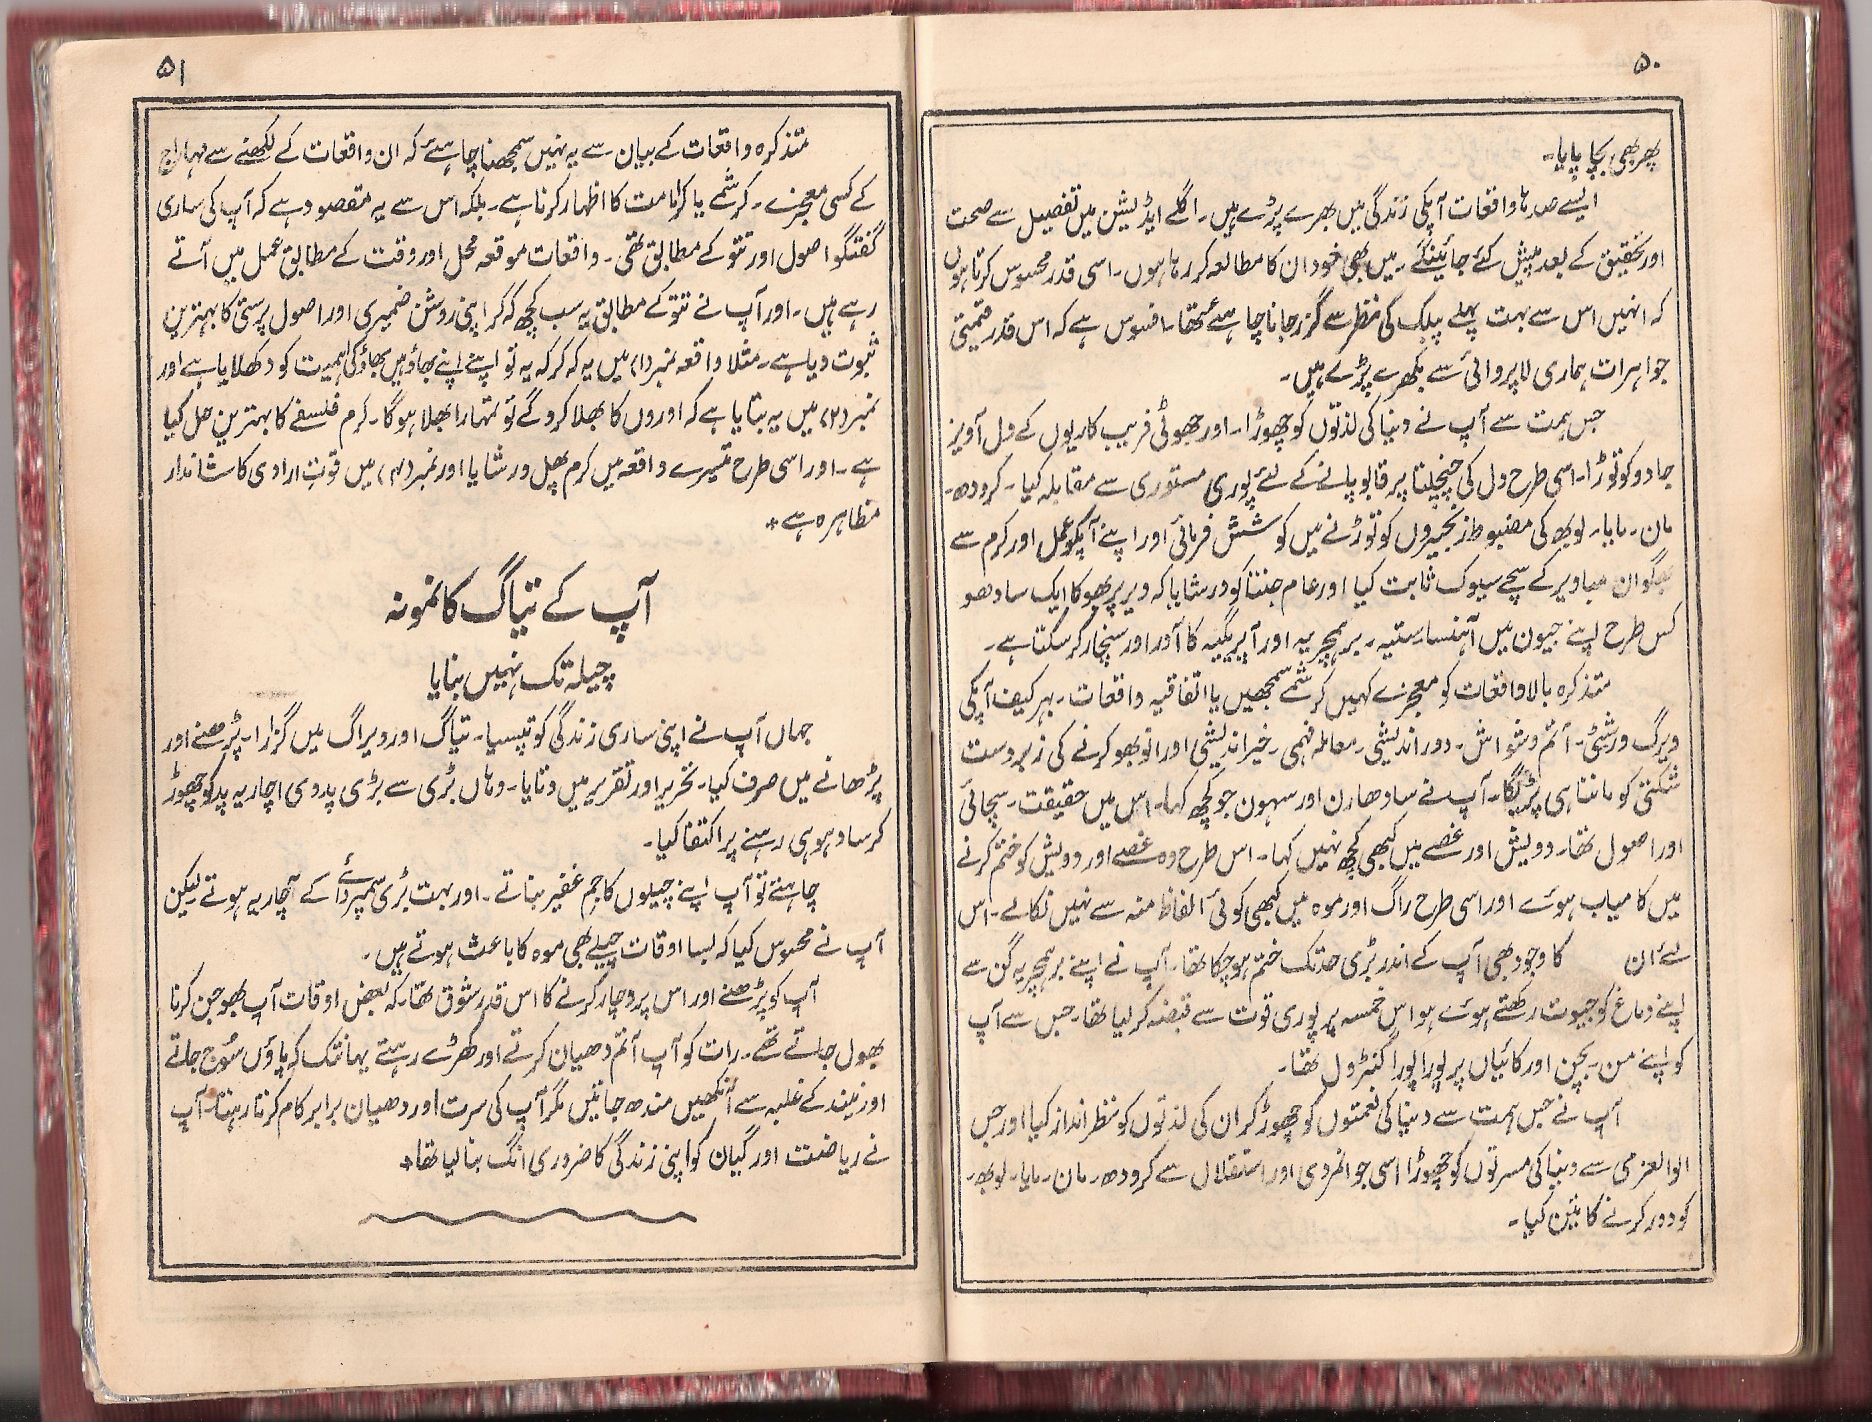 ۵۰
پھر بھی بچا پایا۔
ایسے صدہا واقعات آپکی زندگی میں بھرے پڑے ہیں۔ اگلے ایڈیشن میں تفصیل سے صحت
اور تحقیق کے بعد پیش کئے جائینگے۔ میں بھی خود ان کا مطالعہ کر رہا ہوں۔ اسی قدر محسوس کرتا ہوں
کہ انہیں اس سے بہت پہلے پبلک کی نظر سے گزر جانا چاہئے تھا۔ افسوس ہے کہ اس قدر قیمتی
جواہرات ہماری لاپروائی سے بکھرے پڑے ہیں۔
جس ہمت سے آپ نے دنیا کی لذتوں کو چھوڑا۔ اور جھوٹی فریب کاریوں کے دل آویز
جادو کو توڑا۔ اسی طرح دل کی چنچلتا پر قابو پانے کے لئے پوری مستوری سے مقابلہ کیا۔ کرودھ۔
مان۔ مایا۔ لوبھ کی مضبوط زنجیروں کو توڑنے میں کوشش فرمائی اور اپنے آپکو عمل اور کرم سے
بھگوان مہاویر کے سچے سیوک ثابت کیا اور عام جنتا کو درشایا کہ ویر پربھو کا ایک سادھو
کس طرح اپنے جیون میں آہنسا۔ ستیہ۔ برہمچریہ اور اپریگیہ کا آدر اور سنچار کر سکتا ہے۔
متذکرہ بالا واقعات کو معجزے کہیں کرشمے سمجھیں یا اتفاقیہ واقعات۔ بہر کیف آپکی
ویرگ ورشٹی۔ آتم وشواش۔ دور اندیشی۔ معاملہ فہمی۔ خیر اندیشی اور انوبھو کرنے کی زبردست
شکتی کو ماننا ہی پڑیگا۔ آپ نے سادھارن اور سہون جو کچھ کہا۔ اس میں حقیقت۔ سچائی
اور اصول تھا۔ دویش اور غصے میں کبھی کچھ نہیں کہا۔ اس طرح وہ غصے اور دویش کو ختم کرنے
میں کامیاب ہوئے اور اسی طرح راگ اور موہ میں کبھی کوئی الفاظ منہ سے نہیں نکالے۔ اس
لئے ان کا وجود بھی آپ کے اندر بڑی حد تک ختم ہو چکا تھا۔ آپ نے اپنے برہمچریہ گن سے
اپنے دماغ کو جیوت رکھتے ہوئے ہواس خمسہ پر پوری قوت سے قبضہ کر لیا تھا۔ جس سے آپ
کو اپنے من۔ بچن اور کائیاں پر پورا پورا کنٹرول تھا۔
آپ نے جس ہمت سے دنیا کی نعمتوں کو چھوڑ کر ان کی لذتوں کو نظر انداز کیا اور جس
الوالعزمی سے دنیا کی مسرتوں کو چھوڑا اسی جوانمردی اور استقلال سے کرودھ۔ مان۔ مایا۔ لوبھ۔
کو دور کرنے کا یتن کیا۔
۵۱
متذکرہ واقعات کے بیان سے یہ نہیں سمجھنا چاہئے کہ ان واقعات کے لکھنے سے مہاراج
کے کسی معجزے۔ کرشمے یا کرامت کا اظہار کرنا ہے۔ بلکہ اس سے یہ مقصود ہے کہ آپ کی ساری
گفتگو اصول اور تتو کے مطابق تھی۔ واقعات موقعہ محل اور وقت کے مطابق عمل میں آتے
رہے ہیں۔ اور آپ نے تتو کے مطابق یہ سب کچھ کہ کر اپنی روشن ضمیری اور اصول پرستی کا بہترین
ثبوت دیا ہے۔ مثلاً واقعہ نمبر (۱) میں یہ کہ کر کہ یہ تو اپنے اپنے بھاؤ ہیں بھاؤ کی اہمیت کو دکھلایا ہے اور
نمبر (۲) میں یہ بتایا ہے کہ اوروں کا بھلا کرو گے تو تمہارا بھلا ہوگا۔ کرم فلسفے کا بہترین حل کیا
ہے۔ اور اسی طرح تیسرے واقعہ میں کرم پھل ورشایا اور نمبر (۴) میں قوت ارادی کا شاندار
مظاہرہ ہے٭
آپ کے تیاگ کا نمونہ
چیلہ تک نہیں بنایا
جہاں آپ نے اپنی ساری زندگی کو تپسیا۔ تیاگ اور ویراگ میں گزارا۔ پڑھنے اور
پڑھانے میں صرف کیا۔ تحریر اور تقریر میں وتایا۔ وہاں بڑی سے بڑی پدوی اچاریہ پد کو چھوڑ
کر سادہو ہی رہنے پر اکتفا کیا۔
چاہتے تو آپ اپنے چیلوں کا جم غفیر بناتے۔ اور بہت بڑی سمپردائے کے آچاریہ ہوتے لیکن
آپ نے محسوس کیا کہ بسا اوقات چیلے بھی موہ کا باعث ہوتے ہیں۔
آپ کو پڑھنے اور اس پر وچار کرنے کا اس قدر شوق تھا۔ کہ بعض اوقات آپ بھوجن کرنا
بھول جاتے تھے۔ رات کو آپ آتم دھیان کرتے اور کھڑے رہتے یہانتک کہ پاؤں سُوج جاتے
اور نیند کے غلبہ سے آنکھیں مندھ جاتیں مگر آپ کی سرت اور دھیان برابر کام کرتا رہتا۔ آپ
نے ریاضت اور گیان کو اپنی زندگی کا ضروری انگ بنا لیا تھا٭